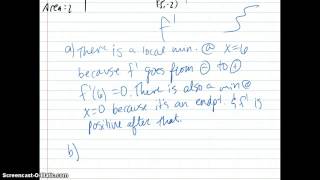 Area=2
f(5,-2)
f'
a) There is a local min. @ x=6
because f' goes from ⊖ to ⊕
f'(6)=0. There is also a min @
x=0 because it's an endpt. & f' is
positive after that.
b)
Screencast-O-Matic.com